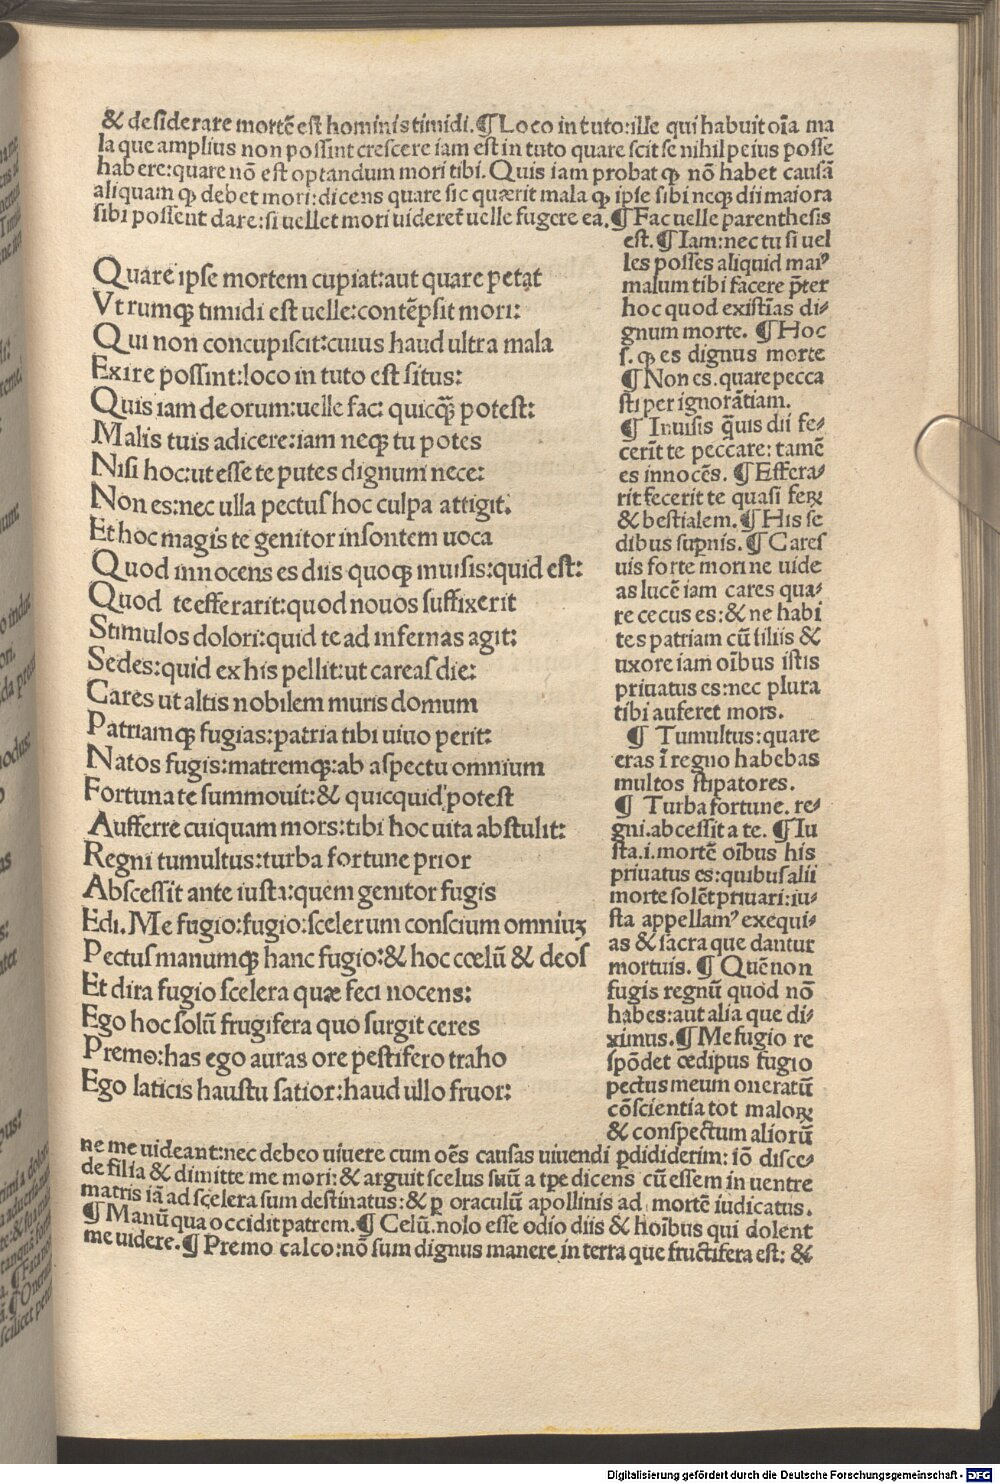 & desiderare mortē est hominis timidi.¶Loco in tuto:ille qui habuit oīa ma
la que amplius non possint crescere iam est in tuto quare scit se nihil peius posse
habere:quare nō est optandum mori tibi. Quis iam probat ꝙ nō habet causā
aliquam ꝙ debet mori:dicens quare sic quærit mala ꝙ ipse sibi neqꝫ dii maiora
sibi possent dare:si uellet mori uideret᷑ uelle fugere ea.¶Fac uelle parenthesis
est.¶Iam:nec tu si uel
les posses aliquid maiꝰ
malum tibi facere p̄ter
hoc quod existīas di-
gnum morte. ¶Hoc
s. ꝙ es dignus morte
¶Non es. quare pecca
sti per ignorātiam.
¶ Inuisis q̄uis dii fe-
cerīt te peccare: tamē
es innocēs. ¶Effera-
rit fecerit te quasi feꝝ
& bestialem.¶His se
dibus sup̄nis.¶Cares
uis forte mori ne uide
as lucē iam cares qua-
re cecus es:& ne habi
tes patriam cū filiis &
uxore iam oībus istis
priuatus es:nec plura
tibi auferet mors.
¶ Tumultus:quare
eras ī regno habebas
multos stipatores.
¶ Turba fortune. re-
gni.abcessit a te. ¶Iu
sta.i.mortē oībus his
priuatus es:quibus alii
morte solēt priuari:iu-
sta appellamꝰ exequi-
as & sacra que dantur
mortuis. ¶ Quē non
fugis regnū quod nō
habes:aut alia que di-
ximus.¶Me fugio re
spōdet œdipus fugio
pectus meum oneratū
cōscientia tot maloꝝ
& conspectum aliorū
Quare ipse mortem cupiat:aut quare petat
Vtrumqꝫ timidi est uelle:contēpsit mori:
Qui non concupiscit:cuius haud ultra mala
Exire possint:loco in tuto est situs:
Quis iam deorum:uelle fac: quicq̄ꝫ potest:
Malis tuis adicere:iam neqꝫ tu potes
Nisi hoc:ut esse te putes dignum nece:
Non es:nec ulla pectus hoc culpa attigit.
Et hoc magis te genitor insontem uoca
Quod innocens es diis quoqꝫ inuisis:quid est:
Quod te efferarit:quod nouos suffixerit
Stimulos dolori:quid te ad infernas agit:
Sedes:quid ex his pellit:ut careas die:
Cares ut altis nobilem muris domum
Patriamqꝫ fugias:patria tibi uiuo perit:
Natos fugis:matremqꝫ:ab aspectu omnium
Fortuna te summouit:& quicquid potest
Aufferre cuiquam mors:tibi hoc uita abstulit:
Regni tumultus:turba fortune prior
Abscessit ante iusta:quem genitor fugis
Edi.Me fugio:fugio:scelerum conscium omniuꝫ
Pectus manumqꝫ hanc fugio:& hoc cœlū & deos
Et dira fugio scelera quæ feci nocens:
Ego hoc solū frugifera quo surgit ceres
Premo:has ego auras ore pestifero traho
Ego laticis haustu satior:haud ullo fruor:
ne me uideant:nec debeo uiuere cum oēs causas uiuendi ꝑdididerim: iō disce-
de filia & dimitte me mori:& arguit scelus suū a tꝑe dicens cū essem in uentre
matris iā ad scelera sum destinatus:& ꝑ oraculū apollinis ad mortē iudicatus.
¶Manū qua occidit patrem.¶ Celū.nolo esse odio diis & hoībus qui dolent
me uidere.¶ Premo calco:nō sum dignus manere in terra que fructifera est: &
Digitalisierung gefördert durch die Deutsche Forschungsgemeinschaft - DFG